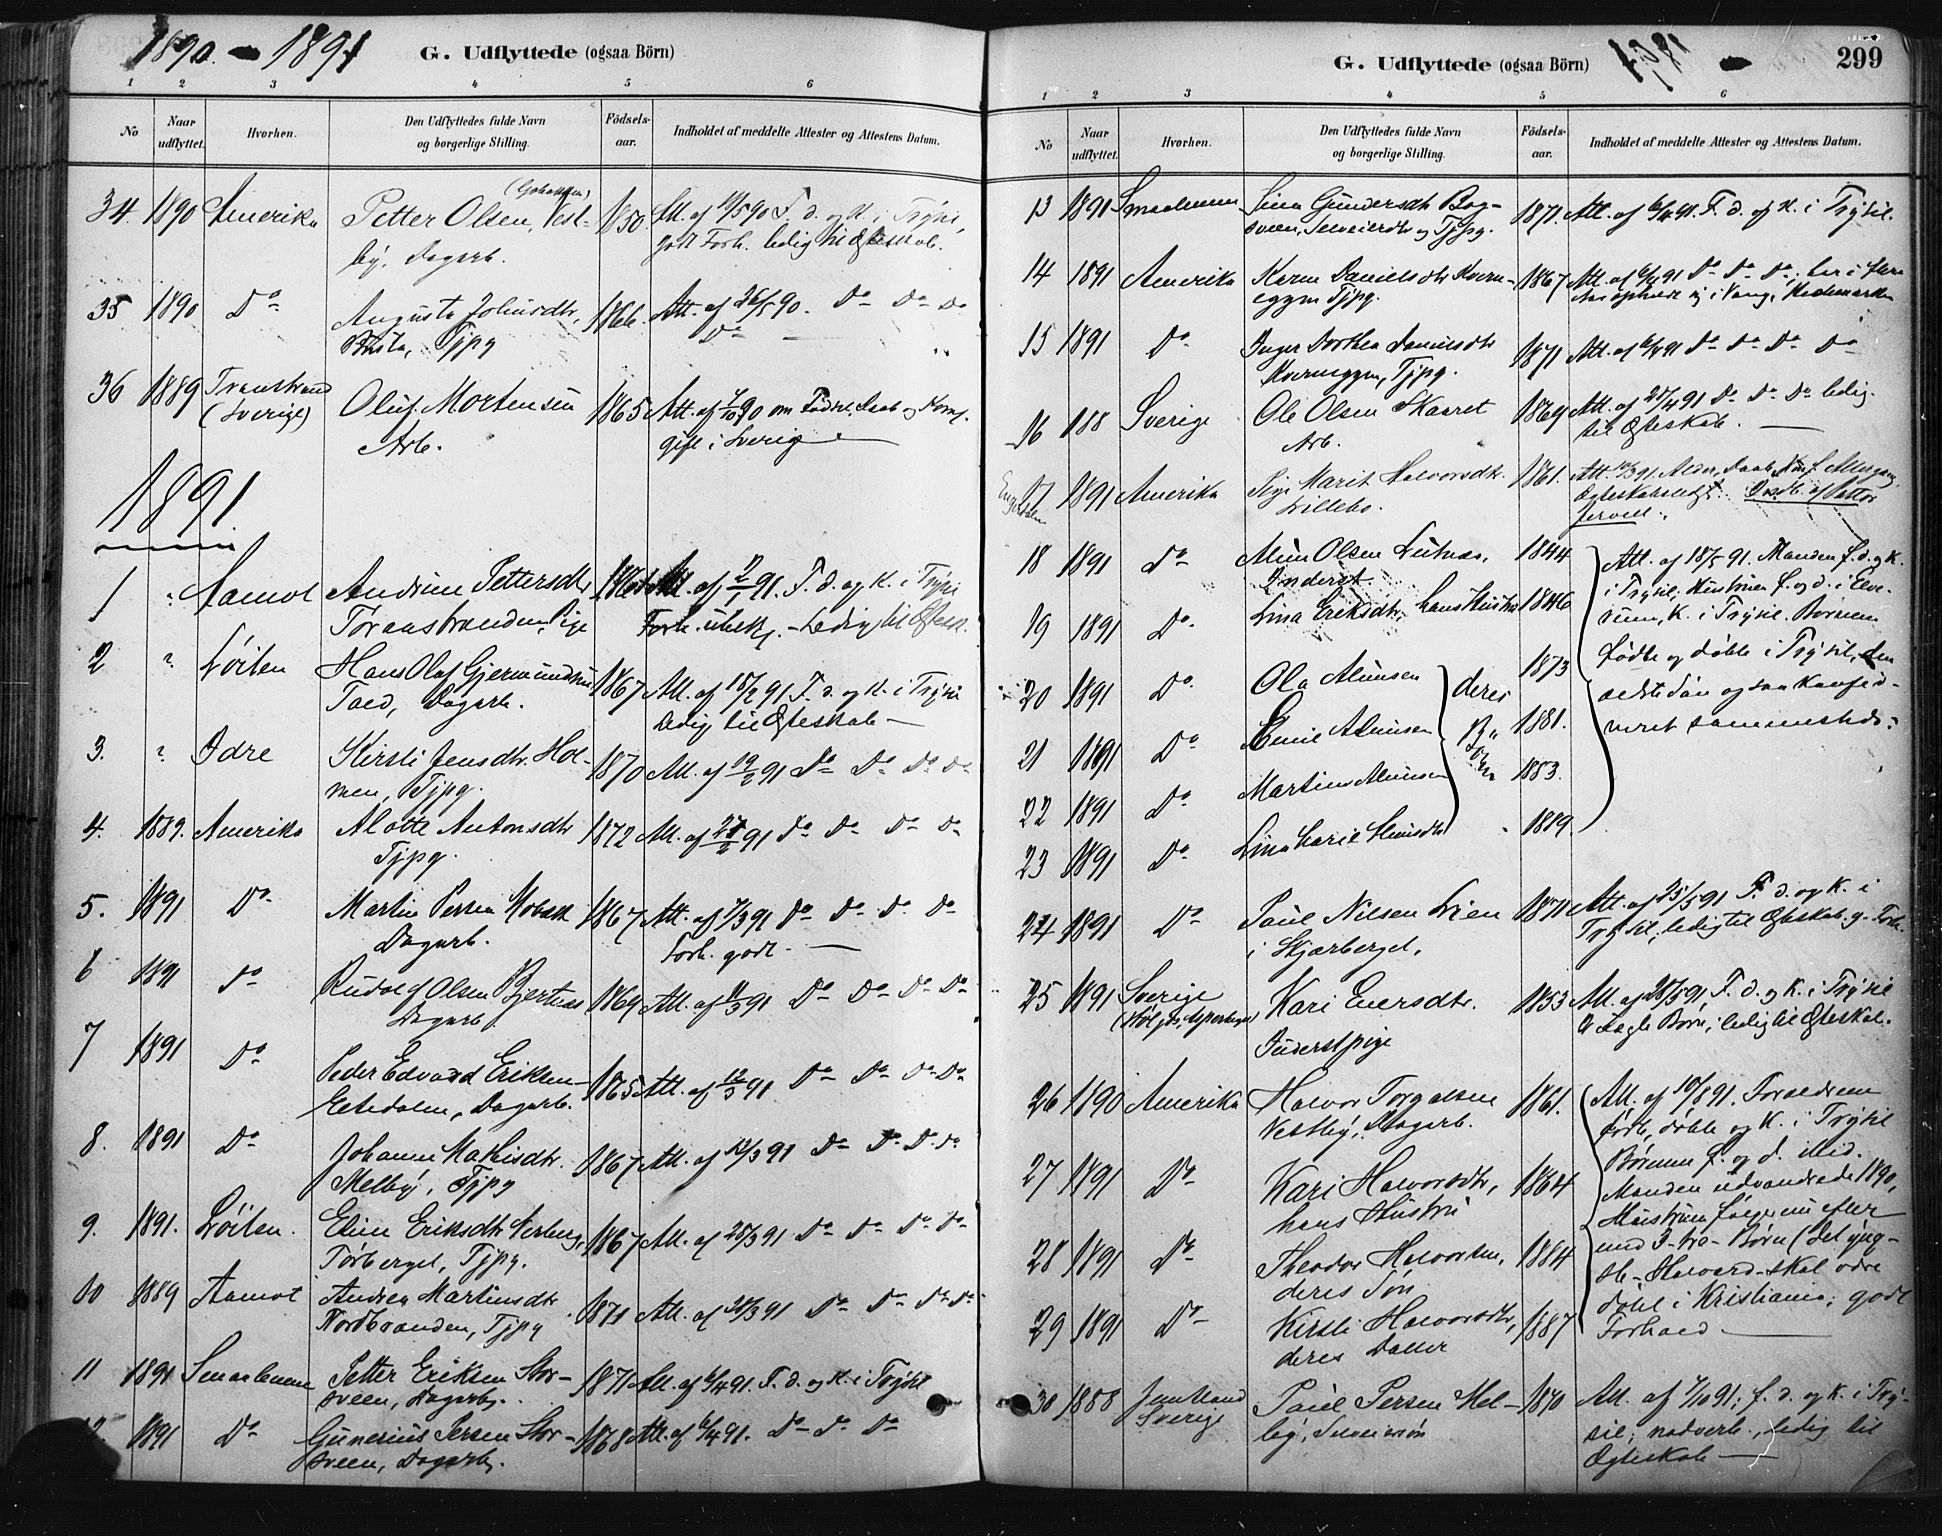 1890 - 1891
G. Udflyttede (ogsaa Börn)
1 2 3 4 5 6
No
Naar udflyttet.
Hvorhen.
Den Udflyttedes fulde Navn og borgerlige Stilling.
Födsels-aar.
Indholdet af meddelte Attester og Attestens Datum.
34. 1890 Amerika Petter Olsen, Vest- 1850. Att. af 10/5 90 F. d. og K. i Trysil,
by, Dagarb. godt Forh. ledig til Ægteskab.
35 1890 Do Augusta Johnsdtr, 1866. Att. af 26/5 90. Do Do Do
Tjpg Do
36 1889 Transtrand Oluf Mortensen 1865 Att. af 7/10 90 om Födsel, Daab og Konf.
(Sverige) Arb. gift i Sverige
1891
1 " Aamot Andrine Pettersdtr Att. af 91. F. d. og K. i Trysil
Pige Forh. ubekj. - Ledig til Ægtesk.
2 " Löiten Hans Olaf Gjermundsen 1867 Att. af 18/2 91 F. d. og K. i Trysil
Dagarb. Ledig til Ægteskab -
3. " Idre Kirsti Jensdtr. Hol- 1870 Att. af 19/2 91 Do Do Do Do
men, Tjpg.
4. 1889. Amerika Antonsdtr 1872 Att. af 91 Do Do Do Do
Tjpg.
5. 1891 Do Martin Persen 1867 Att. af 7/3 91 Do Do Do Do
Dagarb. Forh. godt -
6 1891 Do Rudolf Olsen 1869 Att. af 11/3 91 Do Do Do Do
Dagarb
7 1891 Do Peder Edvard Eriksen 1865 Att. af 12/3 91 Do Do Do Do
Dagarb.
8. 1891 Do Johanne Mathisdtr. 1867 Att. af 13/3 91 Do Do Do Do
Melby, Tjpg
9. 1891. Löiten. Eline Eriksdtr 1867 Att. af 28/3 91 Do Do Do Do
Törberget, Tjpg.
10 1889 Aamot Andrea Martinsdtr 1871 Att. af 28/3 91 Do Do Do Do
Nordbranden, Tjpg
11 1891 Petter Eriksen Stor- 1871 Att. af 6/4 91. F. d. og K. i Trysil
sveen, Dagarb.
1891 Do Gunerius Persen Stor- 1868 Att. af 6/4 91. Do Do Do
sveen, Dagarb.
G. Udflyttede (ogsaa Börn)
1891 -
299
1 2 3 4 5 6
No
Naar udflyttet.
Hvorhen.
Den Udflyttedes fulde Navn og borgerlige Stilling.
Födsels-aar.
Indholdet af meddelte Attester og Attestens Datum.
13 1891 Sina Gundersdtr Bag- 1871. Att. af 6/4 91. F. d. og K. i Trysil.
sveen, Selveierdtr og Tjpg.
14 1891 Amerika Karen Danielsdtr Kvern- 1867 Att. af 6/4 91 Do Do Do; har i flere
eggen Tjpg. Aar opholdt sig i Vang, Hedemarken
15 1891 Do Inger Dorthea Danielsdtr 1871 Att. af 6/4 91 Do Do Do Do
Kverneggen, Tjpg.
16 188 Sverige Ole Olsen Skaaret 1869 Att. af 28/4 91 Do Do Do ledig
Arb. til Ægteskab. -
Engerdalen
17 1891 Amerika Pige Marit Halvorsdtr. 1861. Att. 10/3 91. Alder, Daab, Konf. Altergang
Lillebo. Ægteskabsledigt.
18 1891 Do Olsen Lutnæs, 1844 Att. af 18/5 91. Manden f. d. og K.
Inderst i Trysil; Hustruen f. og d. i Elve-
19 1891 Do Lina Eriksdtr, hans Hustru 1846 rum, K. i Trysil. Börnene
20 1891 Do Ola 1873 födte og döbte i Trysil, den
21 1891 Do 1881. ældste Sön ogsaa konfir-
deres Börn
22 1891 Do Martin 1883. meret sammesteds.
23 1891 Do Lina Marie 1889.
24 1891 Do Paul Nilsen Lien 1871 Att. af 25/5 91 F. d. og K. i
i Skjærberget, Trysil, ledig til Ægteskab. g. Forh.
25 1891 Sverige Kari Eversdtr. 1853 Att. af 28/5 91, F. d. og K. i Trysil
Inderstpige Börn; ledig til Ægteskab.
26 1890 Amerika Halvor Torgalsen 1861. Att. af 10/8 91. Forældrene
Vestby, Dagarb. födte, döbte og K. i Trysil
27 1891 Do Kari Halvorsdtr, 1864 Börnene f. og d. ibid.
hans Hustru Manden udvandrede 1890,
28 1891 Do Theodor Halvorsen, 1884 Hustruen fölger nu efter
deres Sön med 3 - tre - Börn (det yng-
29 1891 Do Kirsti Halvorsdtr, 1887 ste - Halvard - skal være
deres Datter döbt i Kristiania; godt
Forhold -
30 1888 Jemtland Paul Persen Mel- 1870 Att. af 7/10 91; f. d. og K. i Try-
Sverige by, Selveiersön sil; nadverb., ledig til
Ægteskab -